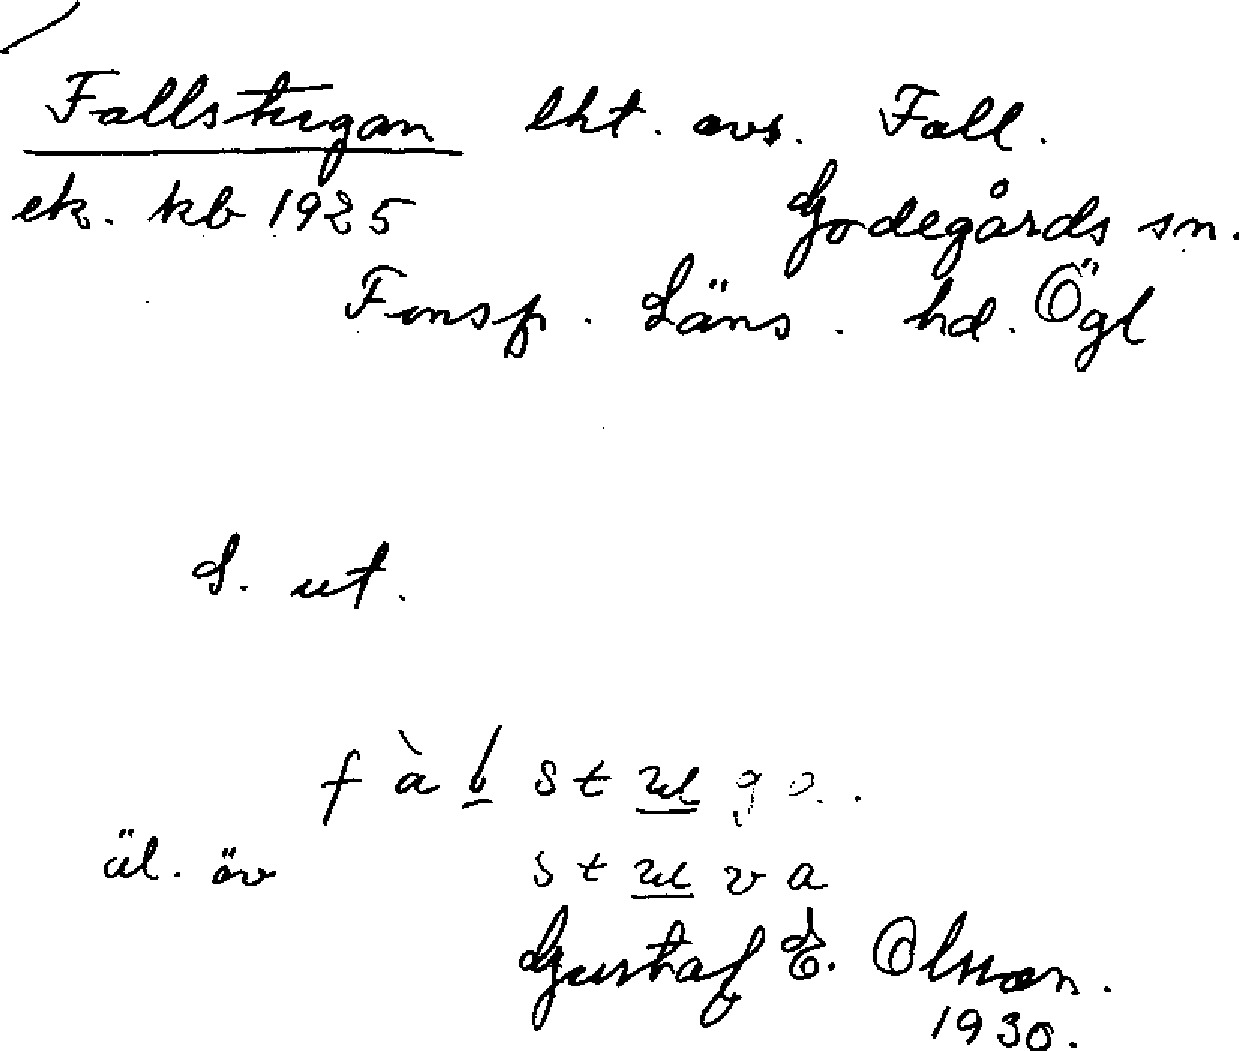 Fallstugan lht. avs. Fall.
ek. kb 1925 Godegårds sn.
Finsp. Läns. hd. Ögl
d. ut.
f à l s t u g a.
äl. äv s t u v a
Gustaf E. Olsson.
1930.